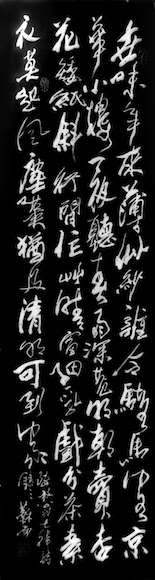 世味年來薄似紗誰令騎馬客京
華小樓一夜聽春雨深巷明朝賣杏
花矮紙斜行閒作草晴窗細乳戲分茶素
衣莫起風塵嘆猶及清明可到家